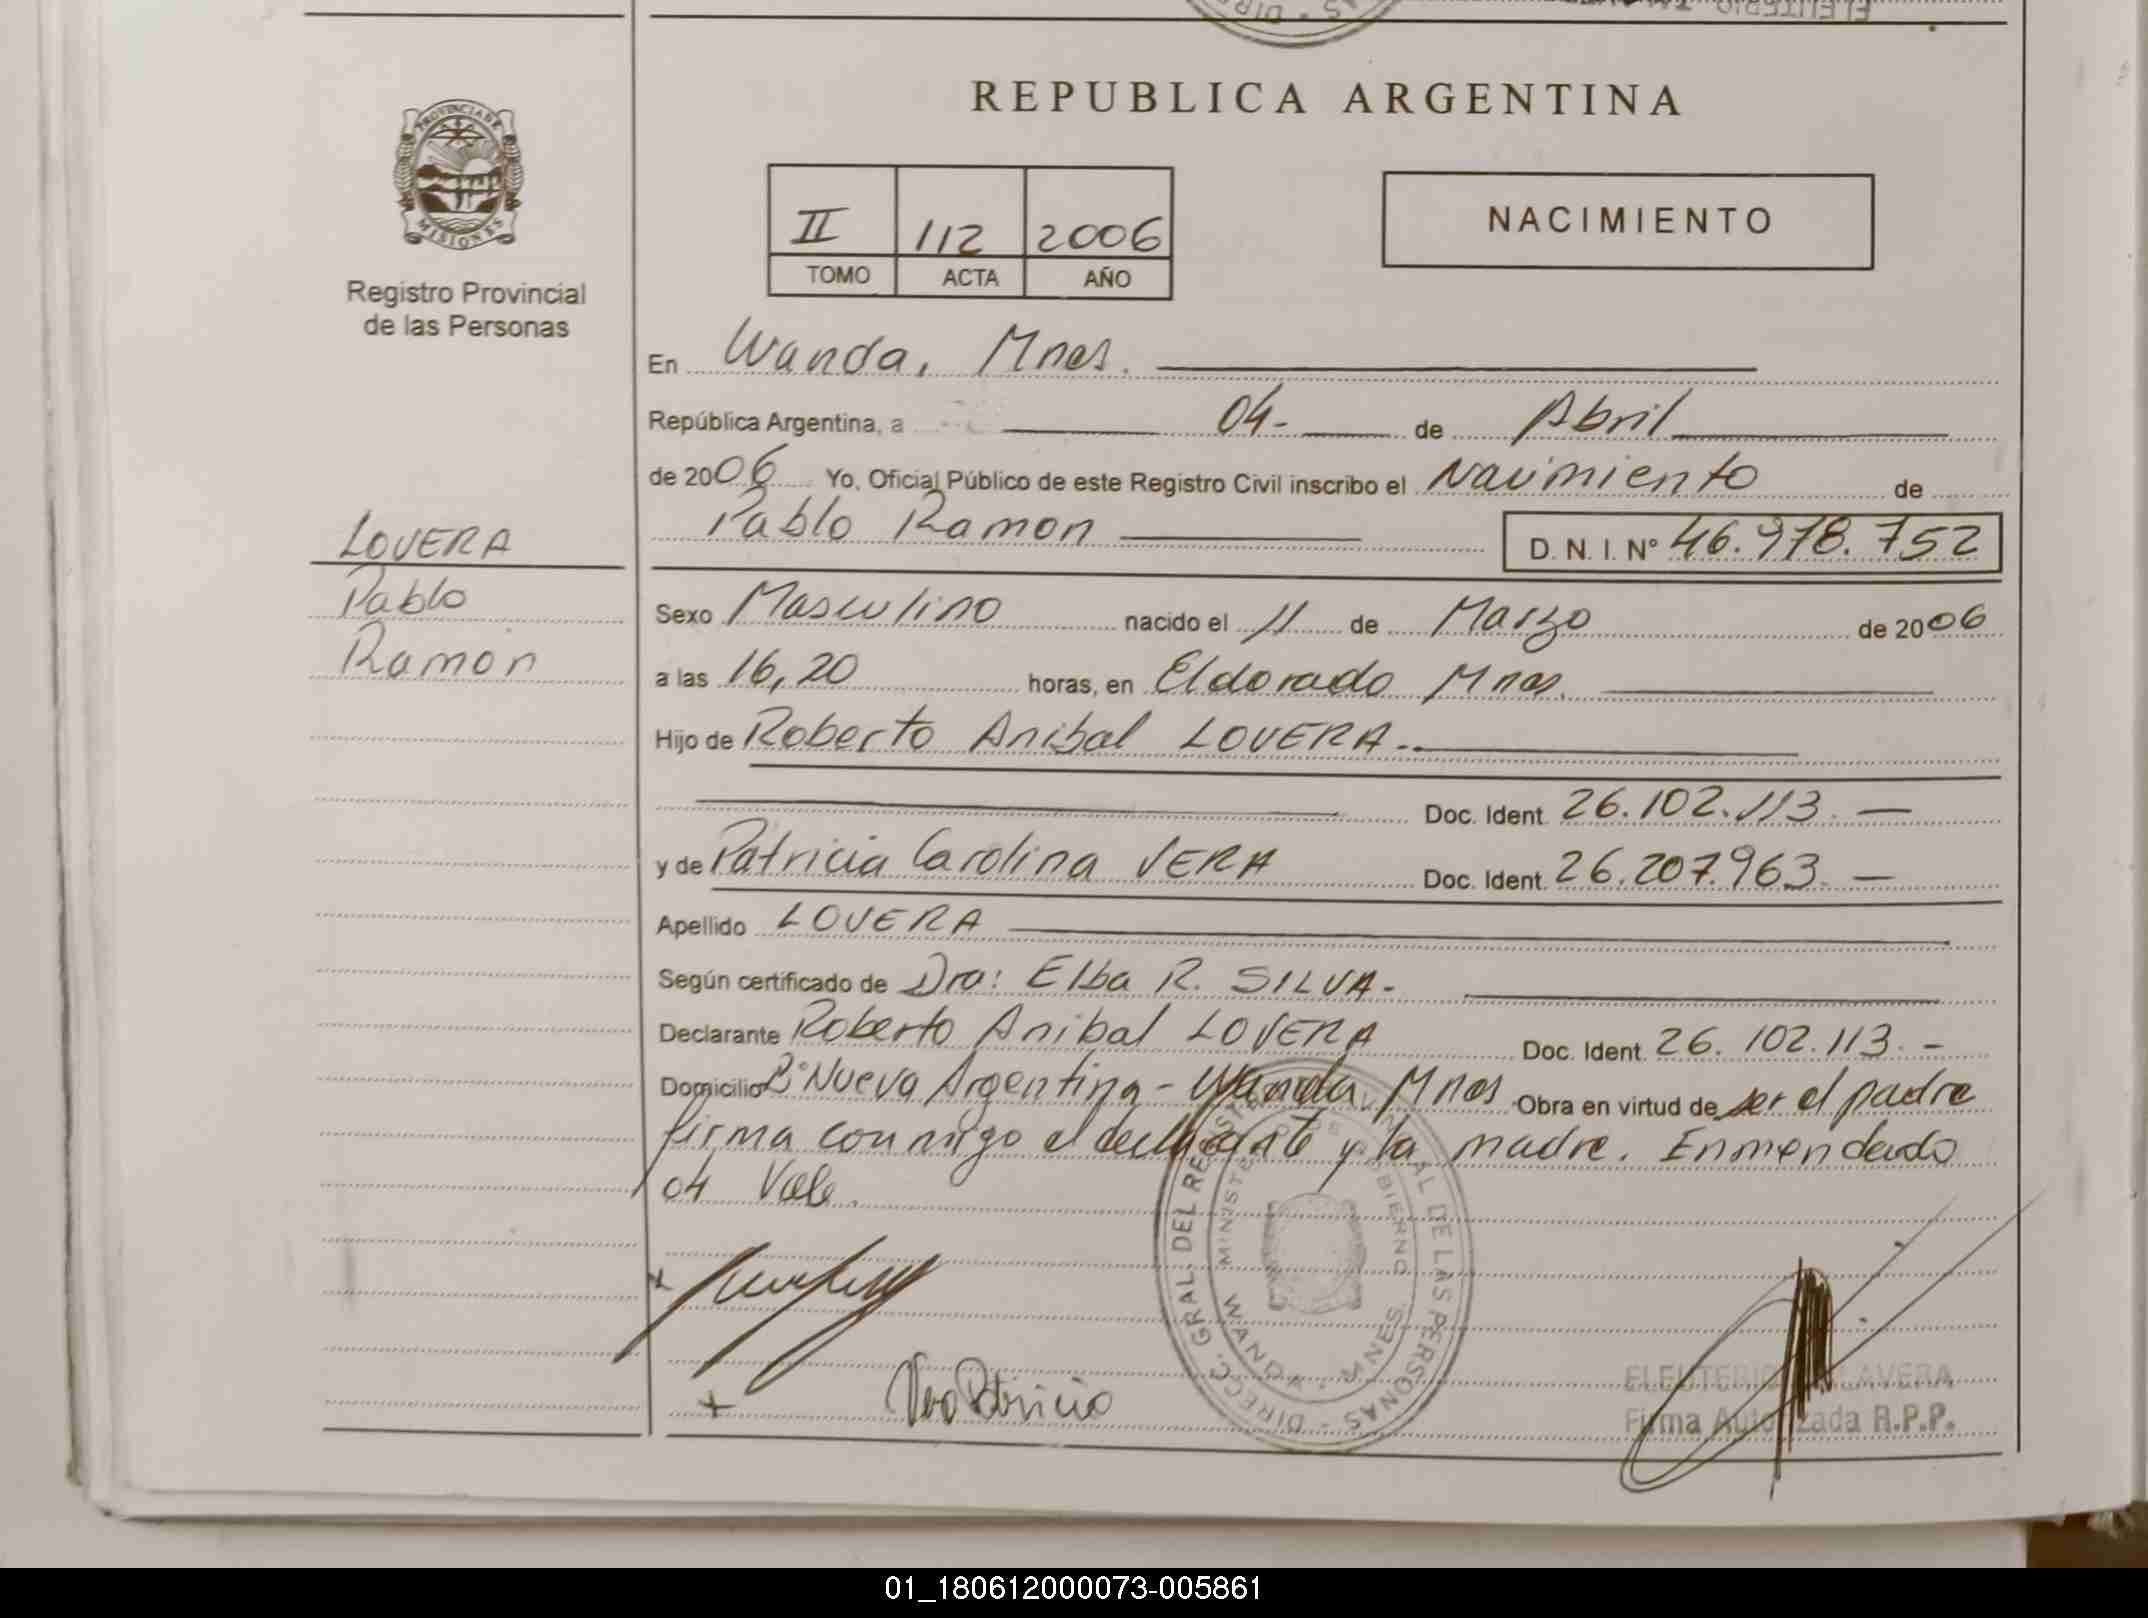 REPUBLICA ARGENTINA
PROVINCIA DE
MISIONES
Registro Provincial
de las Personas
II 112 2006
TOMO ACTA AÑO
NACIMIENTO
En Wanda, Mnes.
República Argentina, a 04- de Abril
de 2006 Yo, Oficial Público de este Registro Civil inscribo el Nacimiento de
Pablo Ramon D. N. I. Nº 46.978.752
LOVERA
Pablo
Ramon
Sexo Masculino nacido el 11 de Marzo de 2006
a las 16,20 horas, en Eldorado Mnes.
Hijo de Roberto Anibal LOVERA.-
Doc. Ident. 26.102.113. —
y de Patricia Carolina VERA Doc. Ident. 26.207.963. —
Apellido LOVERA
Según certificado de Dra: Elba R. SILVA-
Declarante Roberto Anibal LOVERA Doc. Ident. 26.102.113. -
Domicilio Bº Nueva Argentina - Wanda Mnes. Obra en virtud de ser el padre
firma conmigo el declarante y la madre. Enmendado
04 Vale.
DIRECC. GRAL. DEL REGISTRO PROVINCIAL DE LAS PERSONAS -
MINISTERIO DE GOBIERNO
WANDA - MNES.
Vera Patricia
ELEUTERIO
Firma Autorizada R.P.P.
01_180612000073-005861